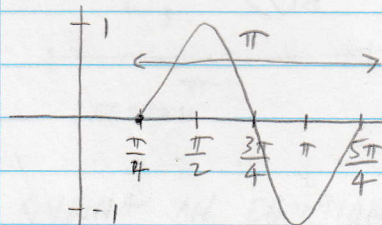 1
π
π/4 π/2 3π/4 π 5π/4
-1